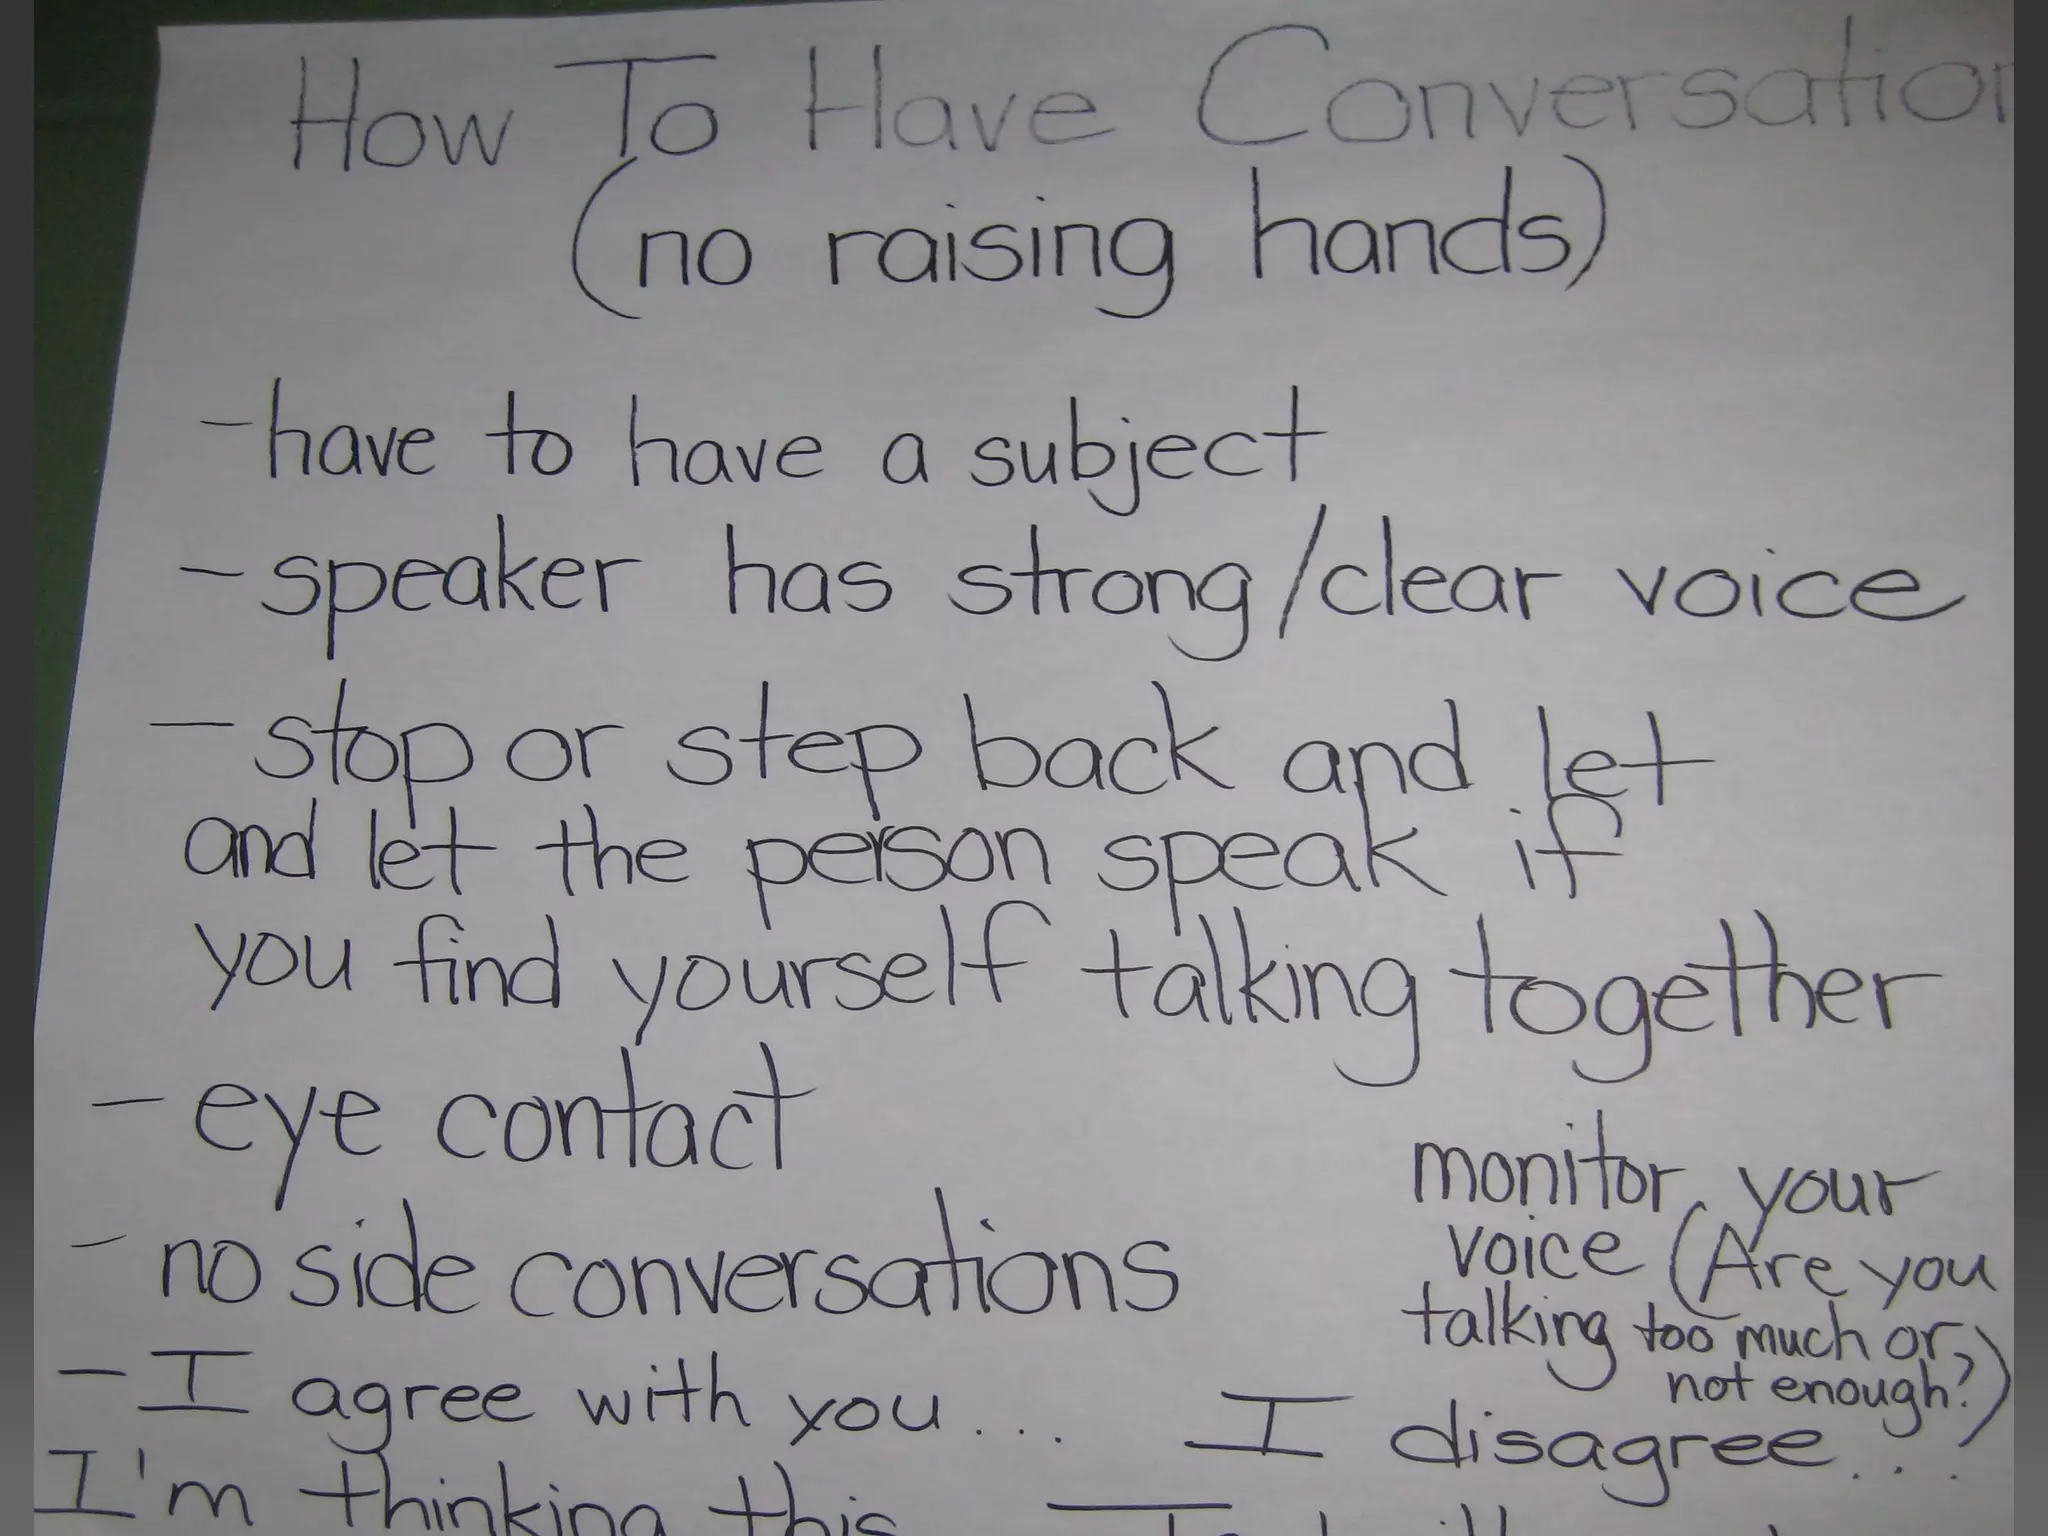 How To Have Conversation
(no raising hands)
- have to have a subject
- speaker has strong/clear voice
- stop or step back and let
and let the person speak if
you find yourself talking together
- eye contact
- no side conversations
monitor your
voice (Are you
talking too much or
not enough?)
- I agree with you... I disagree...
I'm thinking this